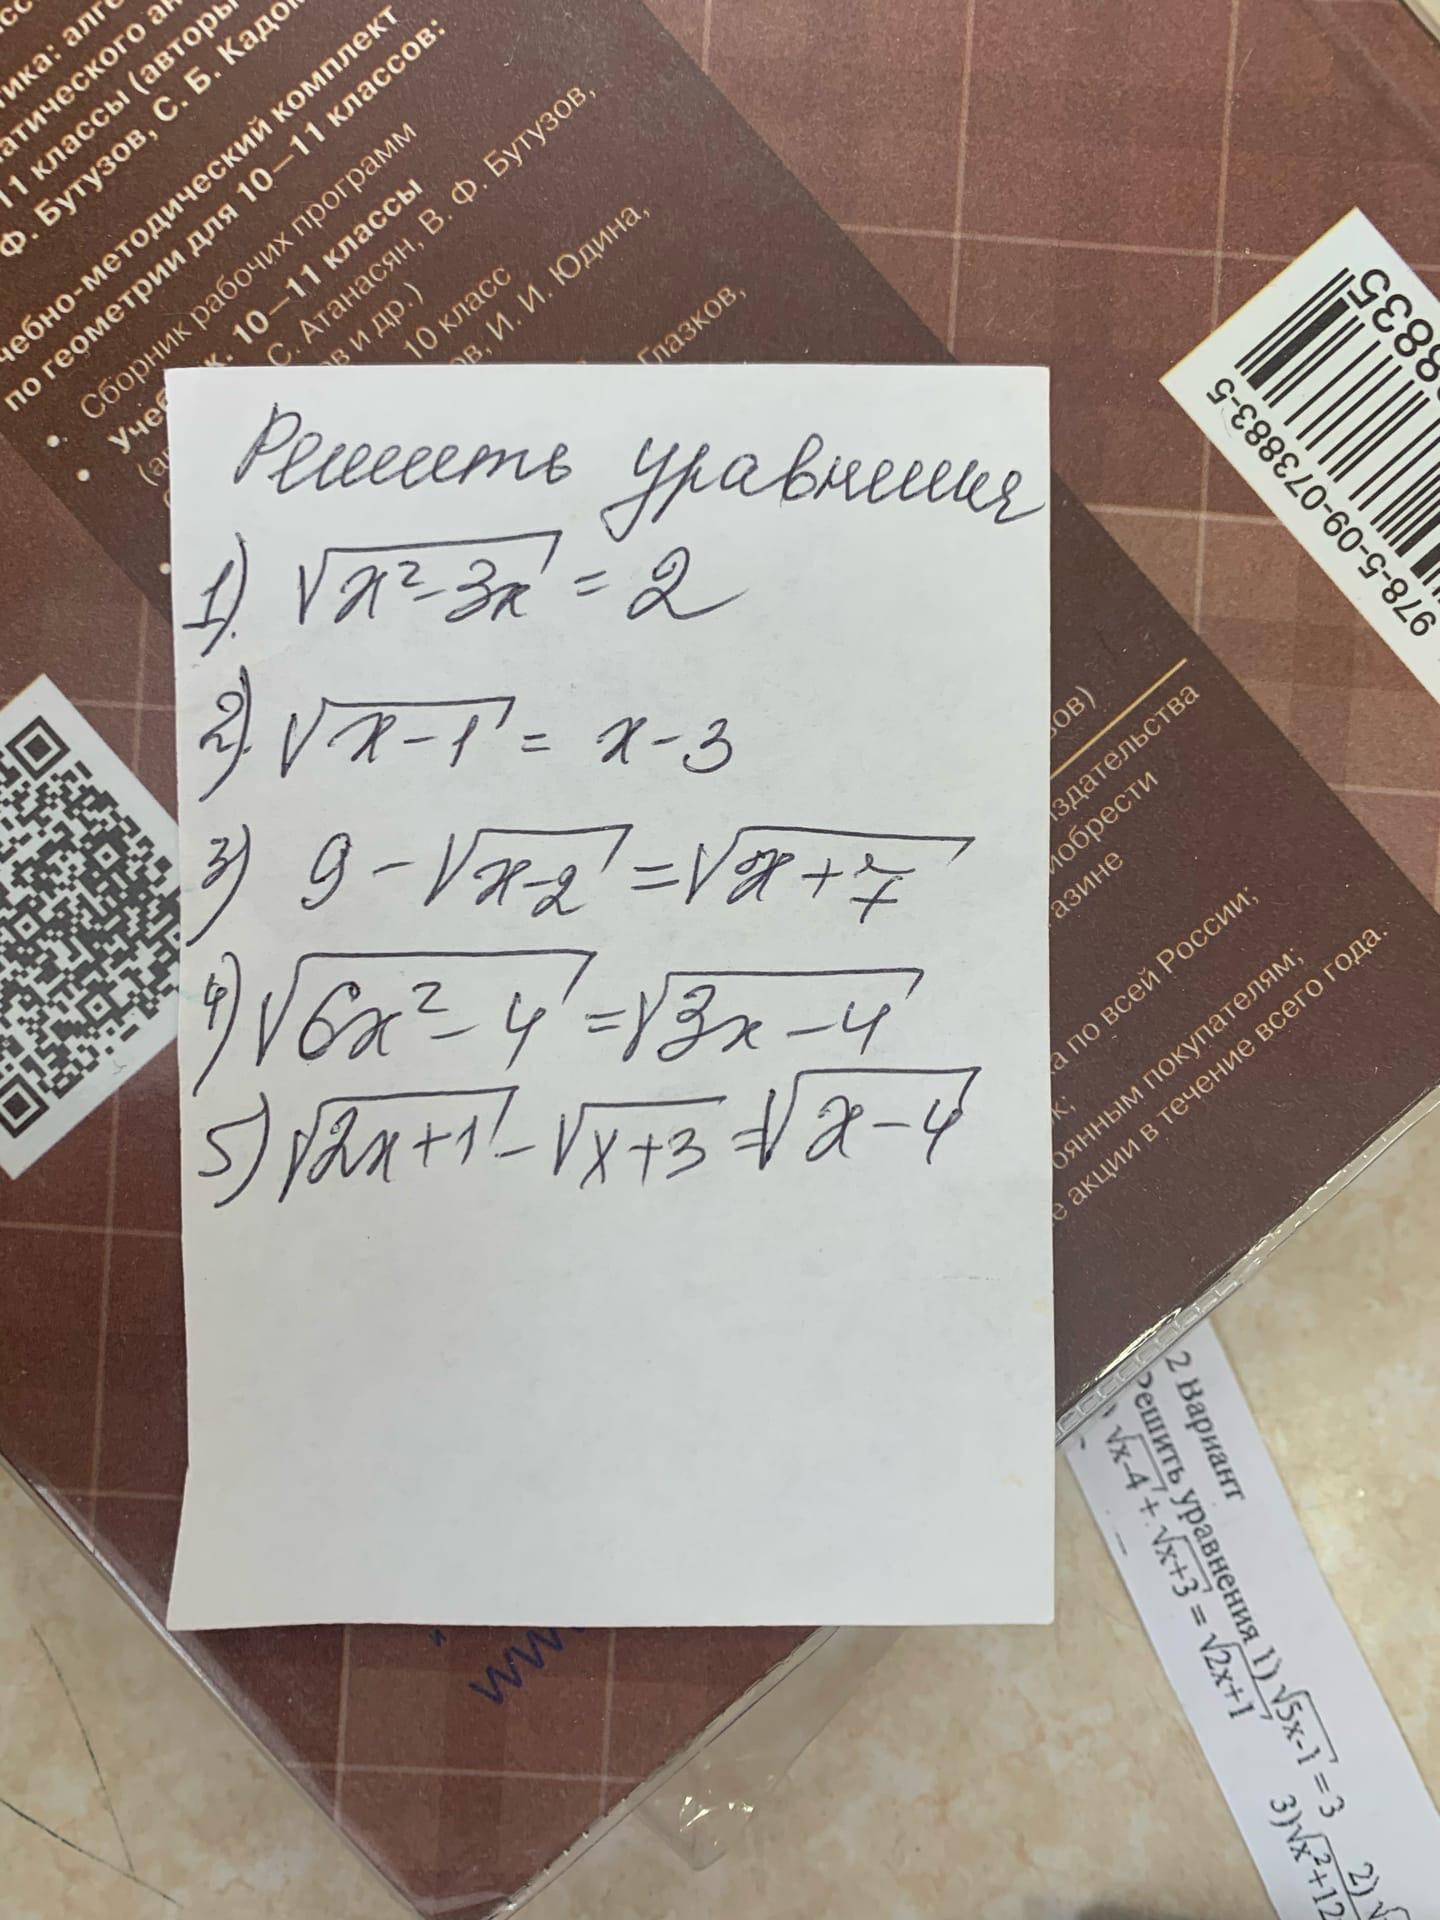 тика: алге
атического ан
11 классы (авторы
Ф. Бутузов, С. Б. Кадом
чебно-методический комплект
по геометрии для 10—11 классов:
• Сборник рабочих программ
10—11 классы
С. Атанасян, В. Ф. Бутузов,
ов и др.)
10 класс
ов, И. И. Юдина,
Глазков,
8835
978-5-09-073883-5
Решить уравнения
1). √x²-3x = 2
2). √x-1 = x-3
3) 9-√x-2 = √x+7
4) √6x²-4 = √3x-4
5) √2x+1 - √x+3 = √x-4
зов)
здательства
иобрести
азине
ка по всей России;
к;
оянным покупателям;
е акции в течение всего года.
www
2 Вариант
Решить уравнения 1) √5x-1 = 3 2) √
√x-4 + √x+3 = √2x+1 3) √x²+12